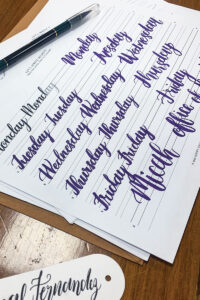 Monday Monday
Tuesday Tuesday
Wednesday Wednesday
Thursday Thursday
Friday Friday
Monday
Tuesday
Wednesday
Thursday
Friday
Micah office
Fernandez